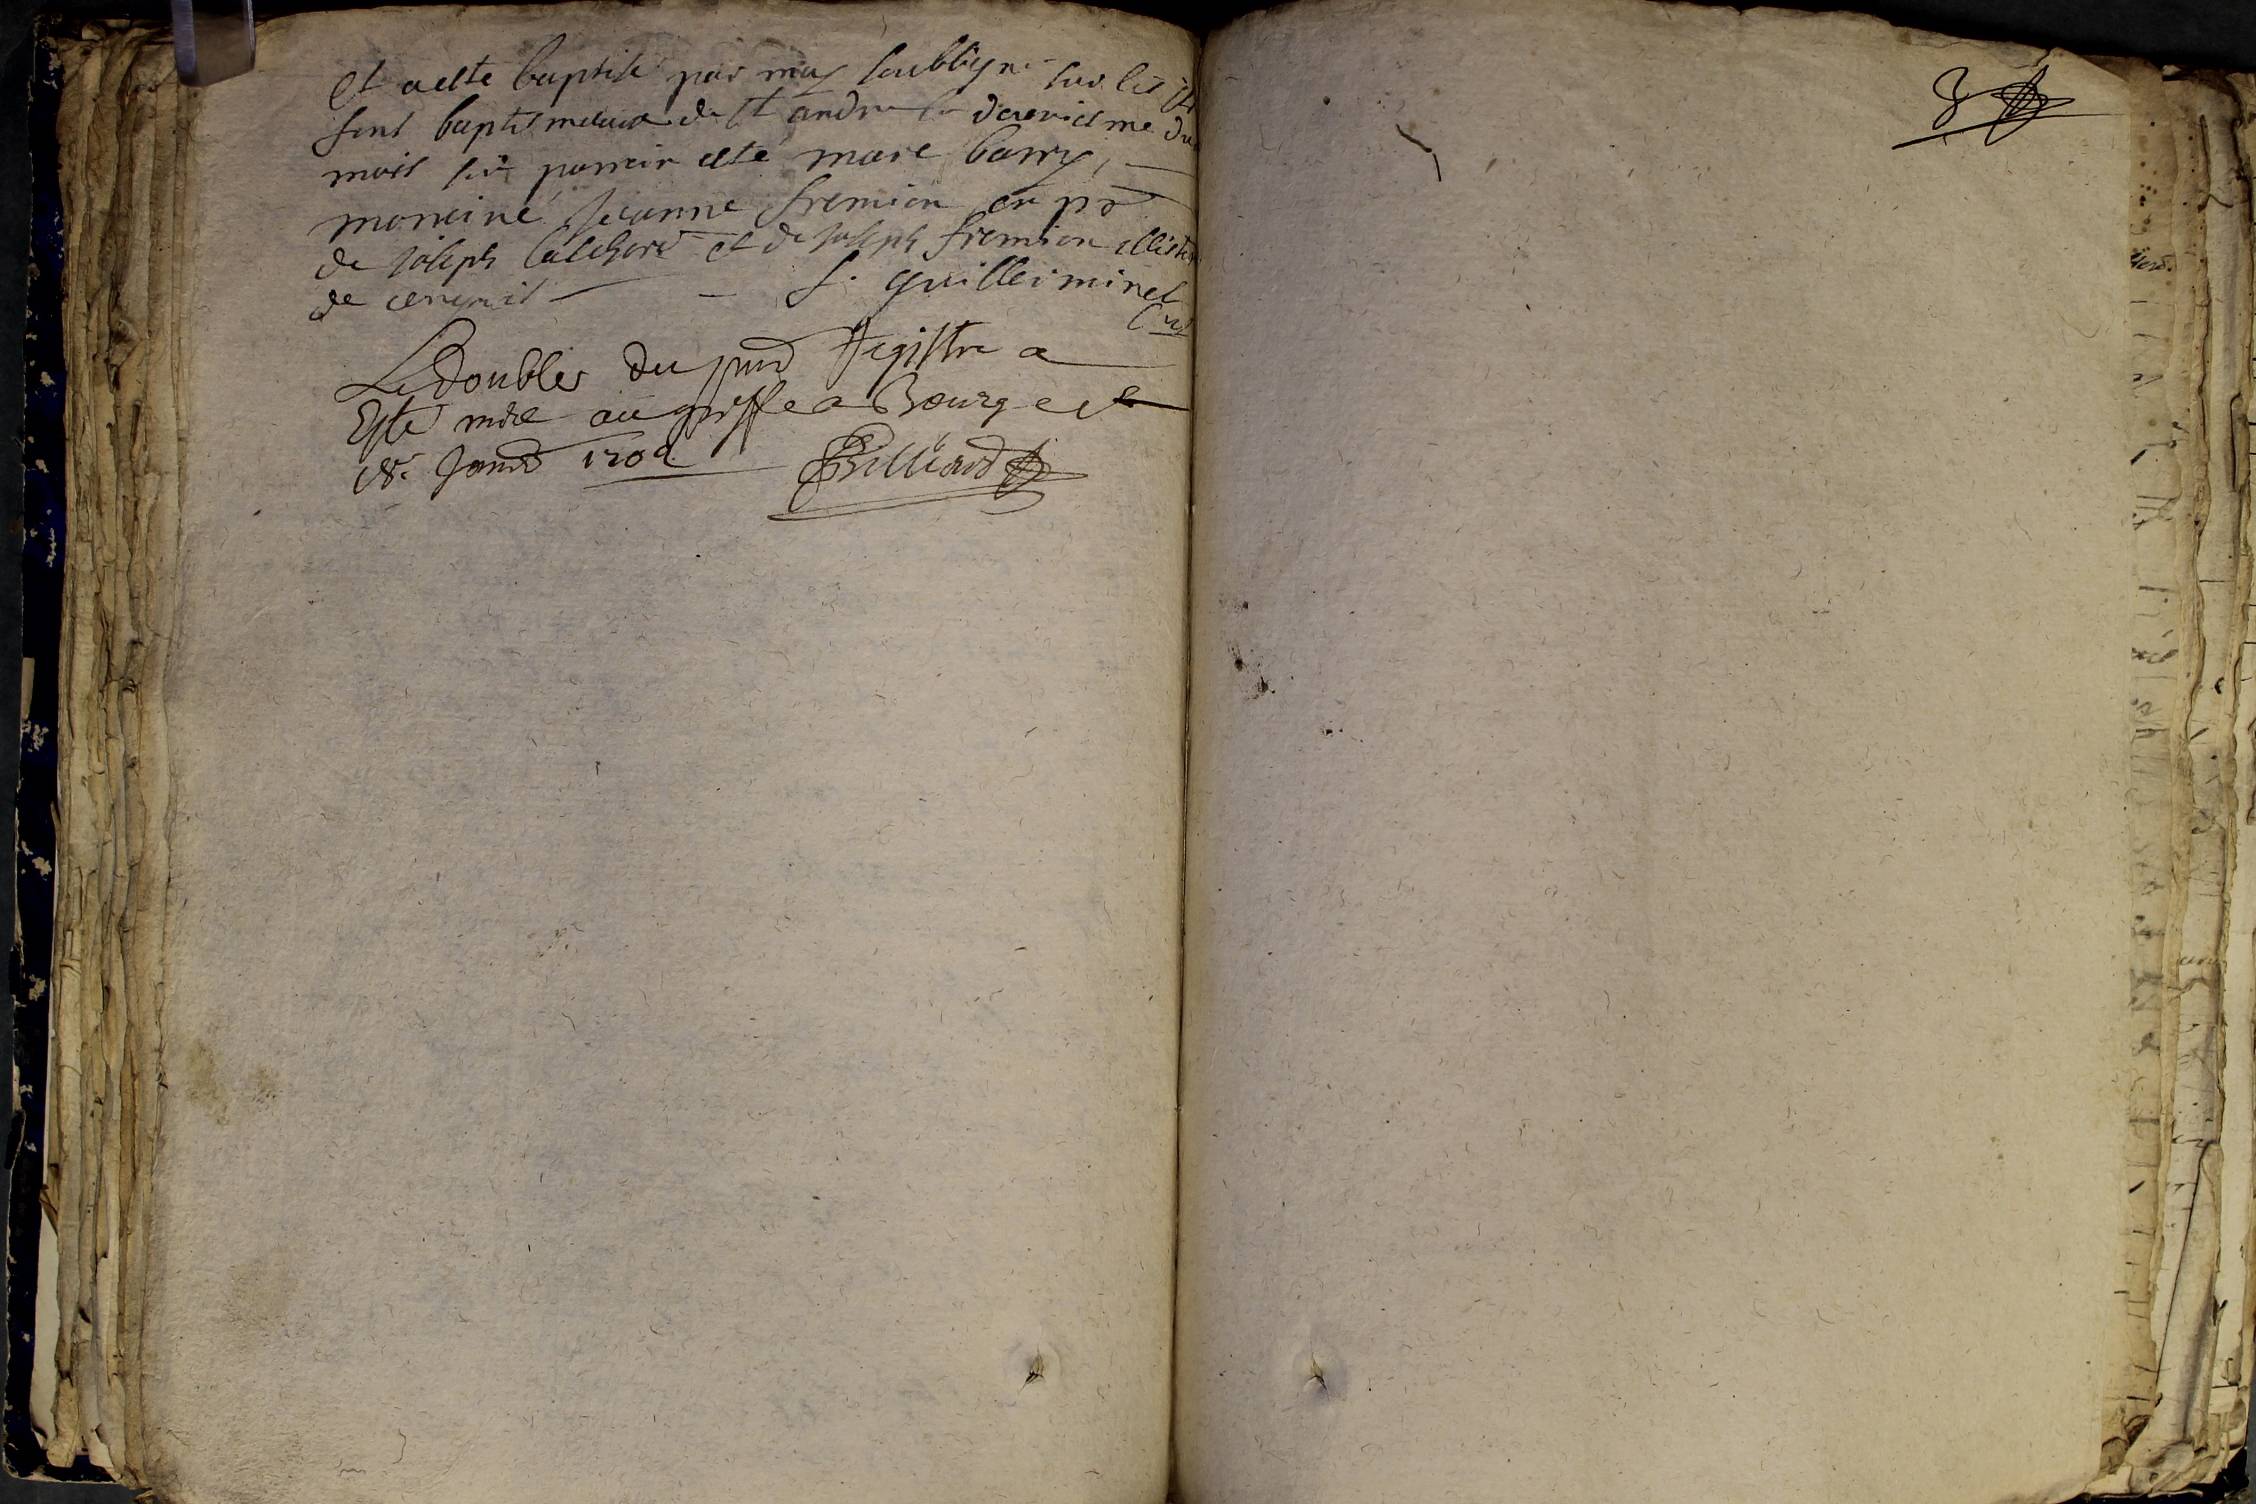 Et a esté baptisé par moy soubsigné sur les
fons baptismaux de st andre le deuviesme du
mois parrein esté marc barry,
mareine Jeanne fremion en pñ
de Joseph et de Joseph fremion illiteré
de ce enquis f. guilleminet
Curé
Le double du pnt Registre a
Esté mise au greffe a Bourg ce
18e Janv 1702 Billiard
8